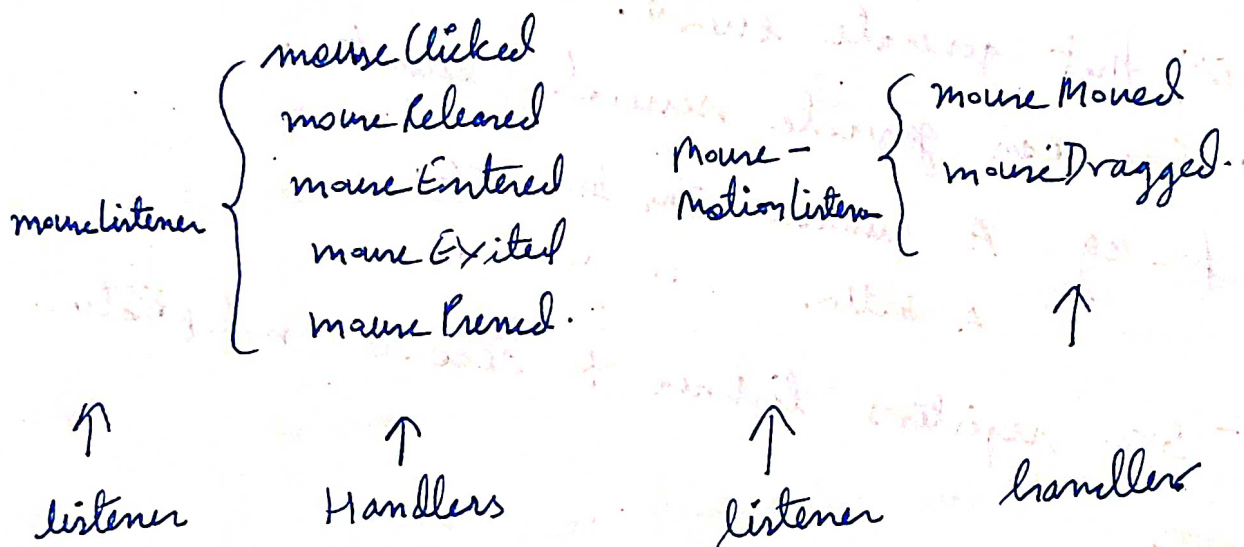 mouseListener
mouse Clicked
mouse Released
mouse Entered
mouse Exited
mouse Pressed.
↑
listener
↑
Handlers
Mouse-
MotionListener
mouse Moved
mouse Dragged.
↑
listener
↑
handlers